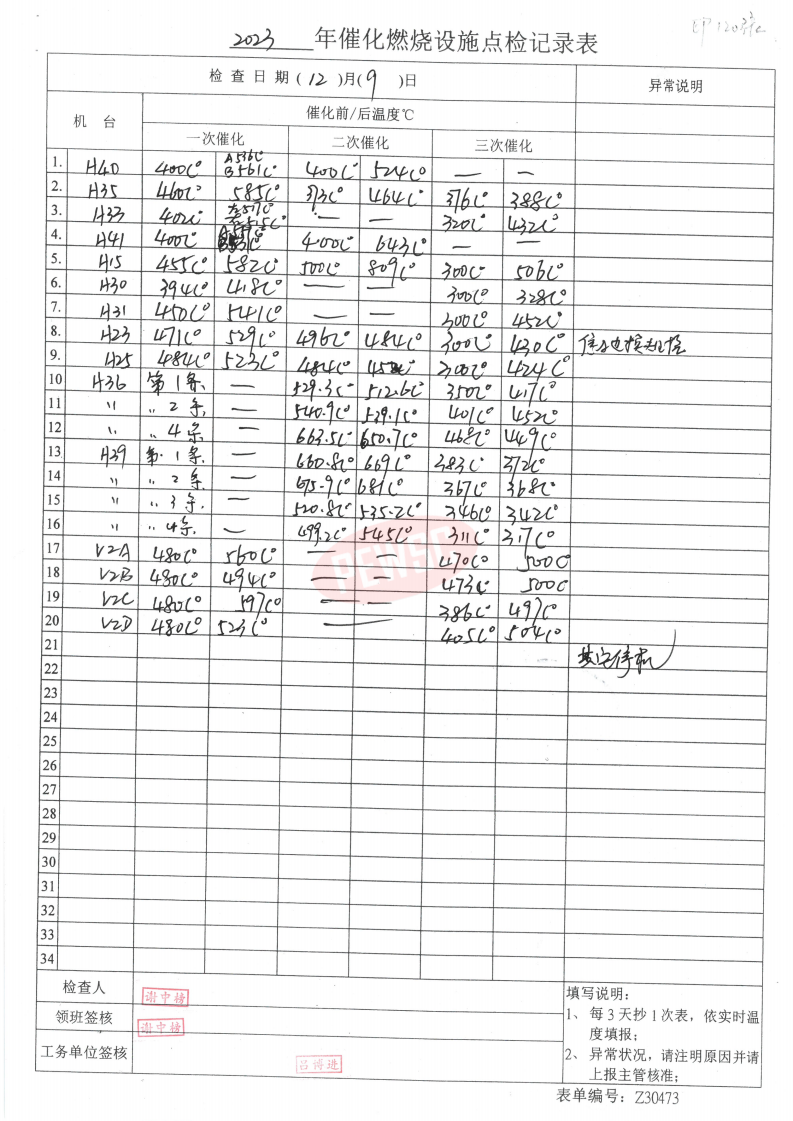 2023 年催化燃烧设施点检记录表
检查日期(12)月(9)日
异常说明
机 台
催化前/后温度℃
一次催化 二次催化 三次催化
1. H40 400C° A536C° B561C° 400C° 524C° — —
2. H35 460C° 585C° 373C° 464C° 376C° 388C°
3. H33 402C° — — 320C° 432C°
4. H41 400C° 400C° 643C° — —
5. H15 455C° 582C° 500C° 809C° 300C° 506C°
6. H30 394C° 418C° — — 300C° 328C°
7. H31 450C° 541C° — — 300C° 452C°
8. H23 471C° 529C° 496C° 484C° 300C° 430C°
9. H25 484C° 523C° 484C° 300C° 424C°
10 H36 第1条 — 529.3C° 512.6C° 350C° 417C°
11 〃 〃2条 — 540.9C° 539.1C° 401C° 452C°
12 〃 〃4条 — 663.5C° 650.7C° 468C° 449C°
13 H39 第1条 — 660.8C° 669C° 383C° 372C°
14 〃 〃2条 — 675.9C° 681C° 367C° 368C°
15 〃 〃3条 — 520.8C° 535.2C° 346C° 342C°
16 〃 〃4条 — 499.2C° 545C° 311C° 317C°
17 V2A 480C° 560C° — — 470C° 500C
18 V2B 480C° 494C° — — 473C° 500C
19 V2C 480C° 597C° — — 386C° 497C°
20 V2D 480C° 523C° — 405C° 504C°
21 其它停机
22
23
24
25
26
27
28
29
30
31
32
33
34
检查人 谢中榜
领班签核 谢中榜
工务单位签核 吕博进
填写说明:
1、每3天抄1次表，依实时温
度填报;
2、异常状况，请注明原因并请
上报主管核准;
表单编号: Z30473
PEWSC